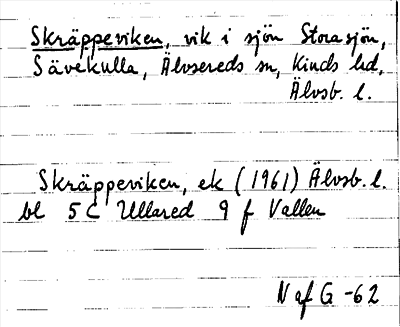 Skräppeviken, vik i sjön Storasjön,
Sävekulla, Älvsereds sn, Kinds hd,
Älvsb. l.
Skräppeviken, ek (1961) Älvsb. l.
bl 5 C Ullared 9 f Vallen
N af G -62